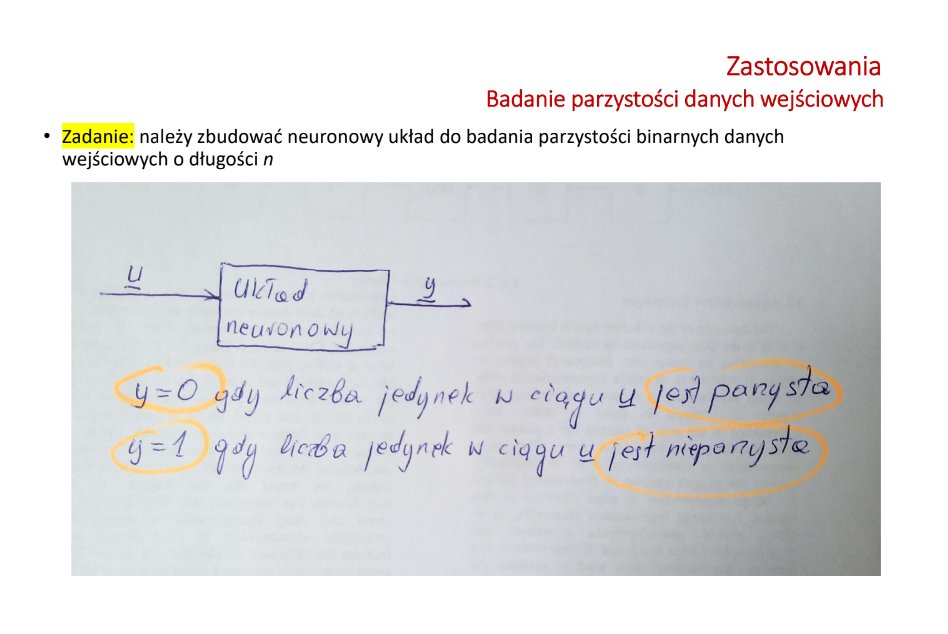 Zastosowania
Badanie parzystości danych wejściowych
• Zadanie: należy zbudować neuronowy układ do badania parzystości binarnych danych
wejściowych o długości n
u
y
Układ
neuronowy
y=0 gdy liczba jedynek w ciągu u jest parzysta
y=1 gdy liczba jedynek w ciągu u jest nieparzysta